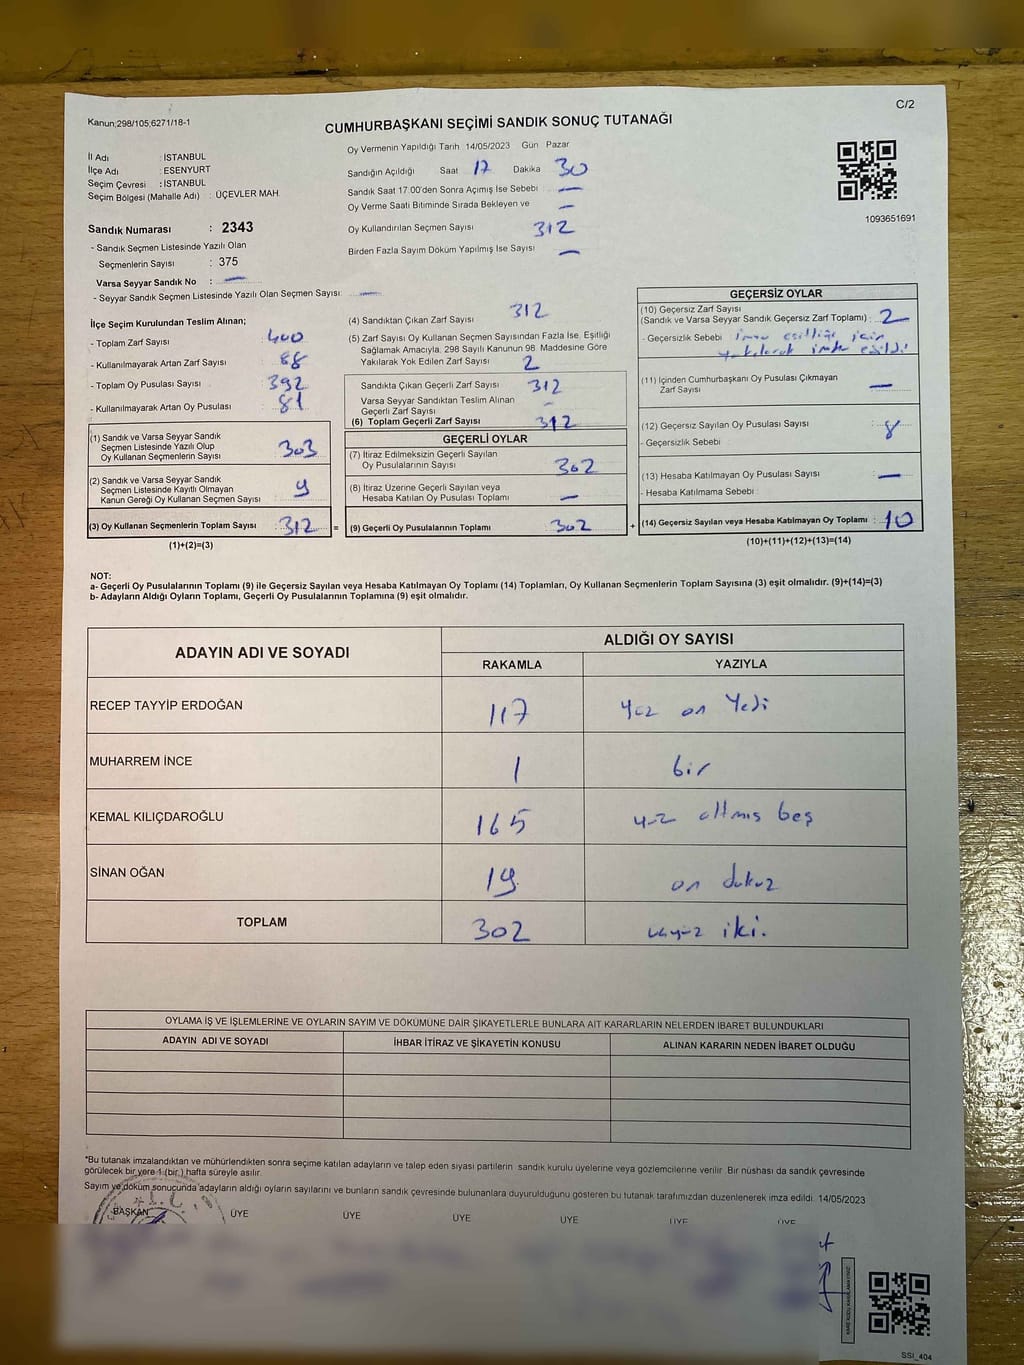 C/2
Kanun;298/105,6271/18-1
CUMHURBAŞKANI SEÇİMİ SANDIK SONUÇ TUTANAĞI
İl Adı : İSTANBUL
İlçe Adı : ESENYURT
Seçim Çevresi : İSTANBUL
Seçim Bölgesi (Mahalle Adı) : ÜÇEVLER MAH.
Sandık Numarası : 2343
- Sandık Seçmen Listesinde Yazılı Olan
Seçmenlerin Sayısı : 375
Varsa Seyyar Sandık No : —
- Seyyar Sandık Seçmen Listesinde Yazılı Olan Seçmen Sayısı: —
Oy Vermenin Yapıldığı Tarih 14/05/2023 Gün Pazar
Sandığın Açıldığı Saat 17 Dakika 30
Sandık Saat 17.00'den Sonra Açımış İse Sebebi —
Oy Verme Saati Bitiminde Sırada Bekleyen ve —
Oy Kullandırılan Seçmen Sayısı 312
Birden Fazla Sayım Döküm Yapılmış İse Sayısı —
1093651691
İlçe Seçim Kurulundan Teslim Alınan;
- Toplam Zarf Sayısı : 400
- Kullanılmayarak Artan Zarf Sayısı : 88
- Toplam Oy Pusulası Sayısı : 392
- Kullanılmayarak Artan Oy Pusulası : 81
(1) Sandık ve Varsa Seyyar Sandık
Seçmen Listesinde Yazılı Olup
Oy Kullanan Seçmenlerin Sayısı : 303
(2) Sandık ve Varsa Seyyar Sandık
Seçmen Listesinde Kayıtlı Olmayan
Kanun Gereği Oy Kullanan Seçmen Sayısı : 9
(3) Oy Kullanan Seçmenlerin Toplam Sayısı : 312 =
(1)+(2)=(3)
(4) Sandıktan Çıkan Zarf Sayısı 312
(5) Zarf Sayısı Oy Kullanan Seçmen Sayısından Fazla İse, Eşitliği
Sağlamak Amacıyla, 298 Sayılı Kanunun 98. Maddesine Göre
Yakılarak Yok Edilen Zarf Sayısı 2
Sandıkta Çıkan Geçerli Zarf Sayısı 312
Varsa Seyyar Sandıktan Teslim Alınan
Geçerli Zarf Sayısı —
(6) Toplam Geçerli Zarf Sayısı 312
GEÇERLİ OYLAR
(7) İtiraz Edilmeksizin Geçerli Sayılan
Oy Pusulalarının Sayısı 302
(8) İtiraz Üzerine Geçerli Sayılan veya
Hesaba Katılan Oy Pusulası Toplamı —
(9) Geçerli Oy Pusulalarının Toplamı 302 +
GEÇERSİZ OYLAR
(10) Geçersiz Zarf Sayısı
(Sandık ve Varsa Seyyar Sandık Geçersiz Zarf Toplamı) : 2
- Geçersizlik Sebebi : imza eşitliği için
yakılarak imha edildi
(11) İçinden Cumhurbaşkanı Oy Pusulası Çıkmayan
Zarf Sayısı —
(12) Geçersiz Sayılan Oy Pusulası Sayısı : 8
- Geçersizlik Sebebi :
(13) Hesaba Katılmayan Oy Pusulası Sayısı : —
- Hesaba Katılmama Sebebi :
(14) Geçersiz Sayılan veya Hesaba Katılmayan Oy Toplamı : 10
(10)+(11)+(12)+(13)=(14)
NOT:
a- Geçerli Oy Pusulalarının Toplamı (9) ile Geçersiz Sayılan veya Hesaba Katılmayan Oy Toplamı (14) Toplamları, Oy Kullanan Seçmenlerin Toplam Sayısına (3) eşit olmalıdır. (9)+(14)=(3)
b- Adayların Aldığı Oyların Toplamı, Geçerli Oy Pusulalarının Toplamına (9) eşit olmalıdır.
ADAYIN ADI VE SOYADI ALDIĞI OY SAYISI
RAKAMLA YAZIYLA
RECEP TAYYİP ERDOĞAN 117 yüz on Yedi
MUHARREM İNCE 1 bir
KEMAL KILIÇDAROĞLU 165 yüz altmış beş
SİNAN OĞAN 19 on dokuz
TOPLAM 302 üçyüz iki.
OYLAMA İŞ VE İŞLEMLERİNE VE OYLARIN SAYIM VE DÖKÜMÜNE DAİR ŞİKAYETLERLE BUNLARA AİT KARARLARIN NELERDEN İBARET BULUNDUKLARI
ADAYIN ADI VE SOYADI İHBAR İTİRAZ VE ŞİKAYETİN KONUSU ALINAN KARARIN NEDEN İBARET OLDUĞU
*Bu tutanak imzalandıktan ve mühürlendikten sonra seçime katılan adayların ve talep eden siyasi partilerin sandık kurulu üyelerine veya gözlemcilerine verilir. Bir nüshası da sandık çevresinde
görülecek bir yere 1 (bir) hafta süreyle asılır.
Sayım ve döküm sonucunda adayların aldığı oyların sayılarını ve bunların sandık çevresinde bulunanlara duyurulduğunu gösteren bu tutanak tarafımızdan düzenlenerek imza edildi. 14/05/2023
T.C.
BAŞKAN ÜYE ÜYE ÜYE ÜYE ÜYE ÜYE
SSI_404